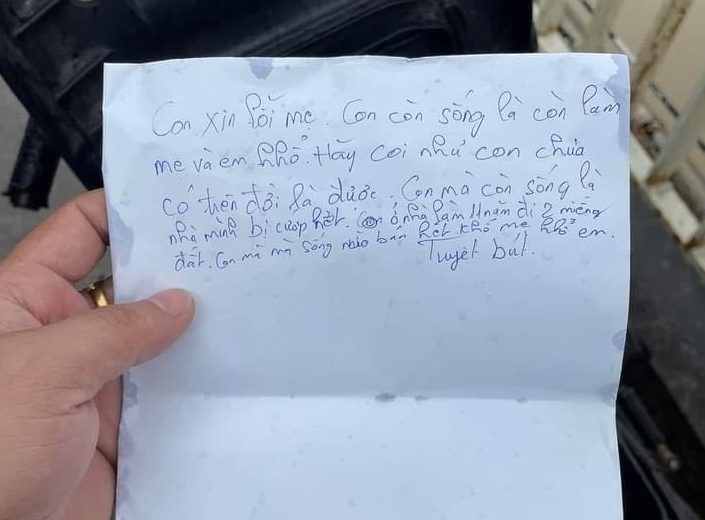 Con xin lỗi mẹ. Con còn sống là còn làm
mẹ và em khổ. Hãy coi như con chưa
có trên đời là được. Con mà còn sống là
nhà mình bị cướp hết. Con ở nhà làm 11 năm đi 2 miếng
đất. Con mà mà sống nào bán hết khổ mẹ khổ em.
Tuyệt bút.